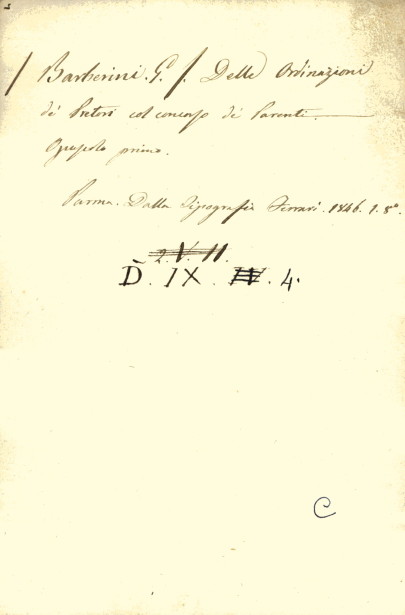 / Barberini. G. /. Delle Ordinazioni
de' Pretori col concorso de' Parenti.
Opuscolo primo.
Parma. Dalla Tipografia Ferrari. 1846. 1. 8°.
2. V. 11.
D. IX. IV. 4.
C